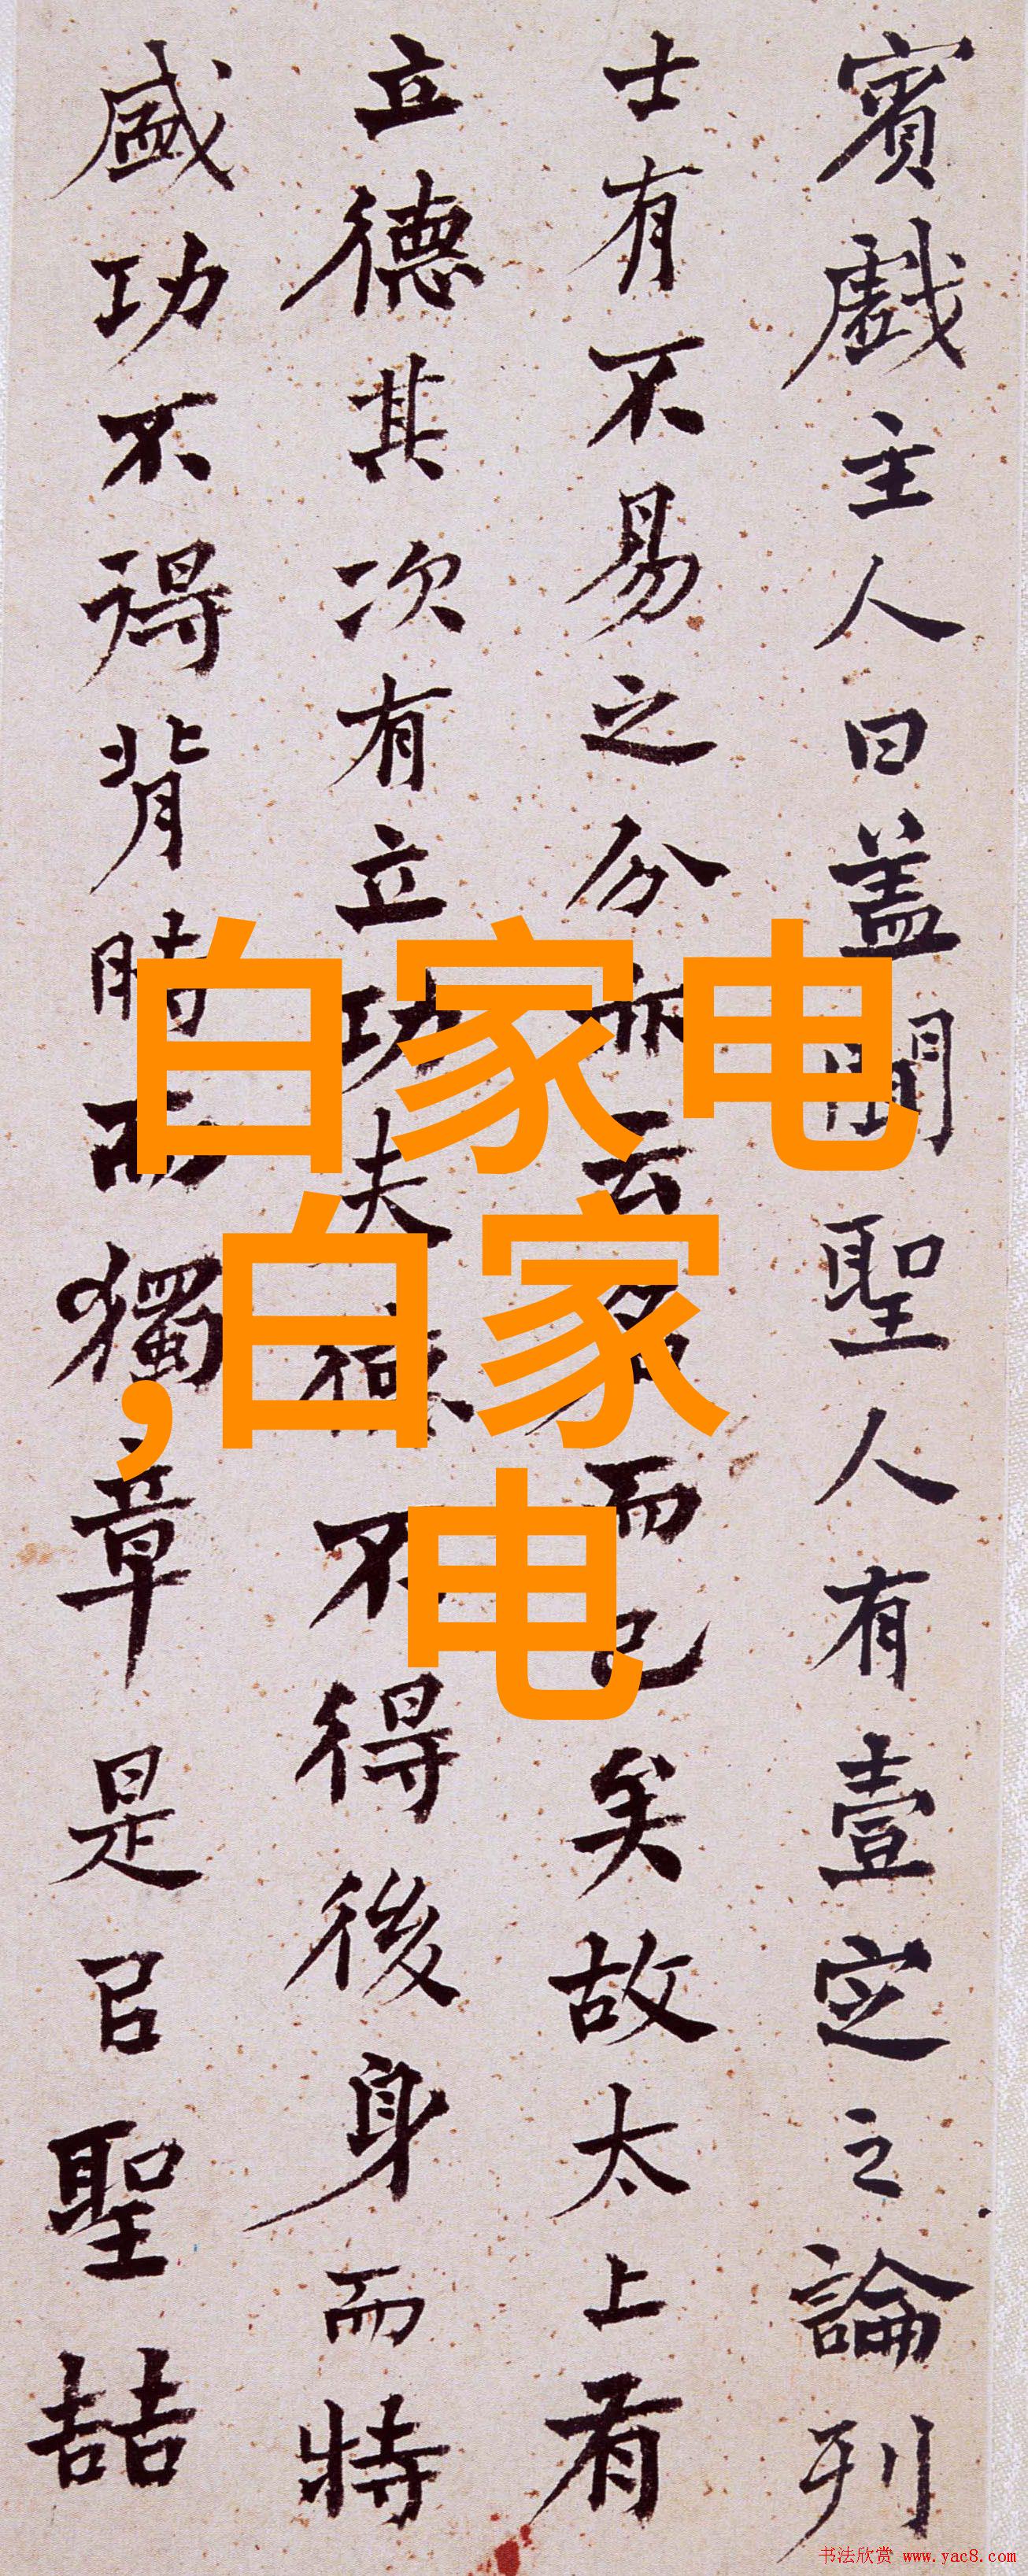 賓戲主人曰盖聞聖人有壹定之論列
士有不易之分亦云名而已矣故太上有
立德其次有立功夫德不得後身而特
盛功不得背時而獨章是以聖喆
白家电
,白家
电
书法欣赏 www.yac8.com